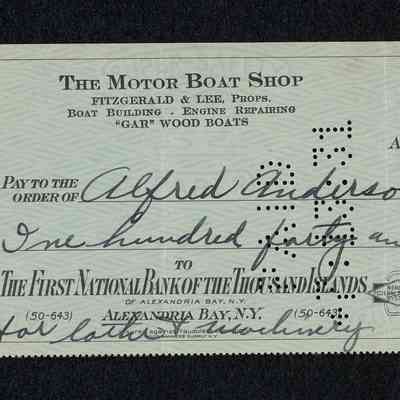 THE MOTOR BOAT SHOP
FITZGERALD & LEE, PROPS.
BOAT BUILDING - ENGINE REPAIRING
"GAR" WOOD BOATS
A
PAY TO THE
ORDER OF Alfred Anderso
One hundred forty an
TO
THE FIRST NATIONAL BANK OF THE THOUSAND ISLANDS
OF ALEXANDRIA BAY, N.Y.
(50-643) ALEXANDRIA BAY, N.Y. (50-643)
For lathe & machinery